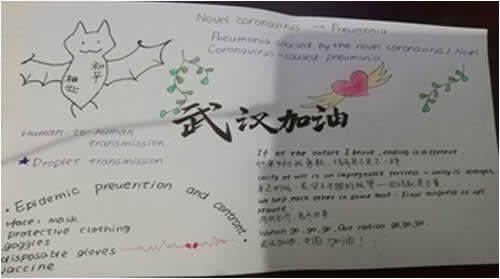 Novel coronavirus → Pneumonia
Pneumonia caused by the novel coronavirus / Novel
Coronavirus-caused pneumonia
和平
相处
武汉加油
Human-to-human
transmission
★ Droplet transmission
If at the outset I brave, ending is different.
Unity of will is an impregnable fortress - unity is strength.
we help each other in same boat. Final conquest is not
remote.
Wuhan go, go, go. Our nation go, go, go.
武汉加油, 中国加油!
• Epidemic prevention and control •
face mask
protective clothing
goggles
disposable gloves
vaccine